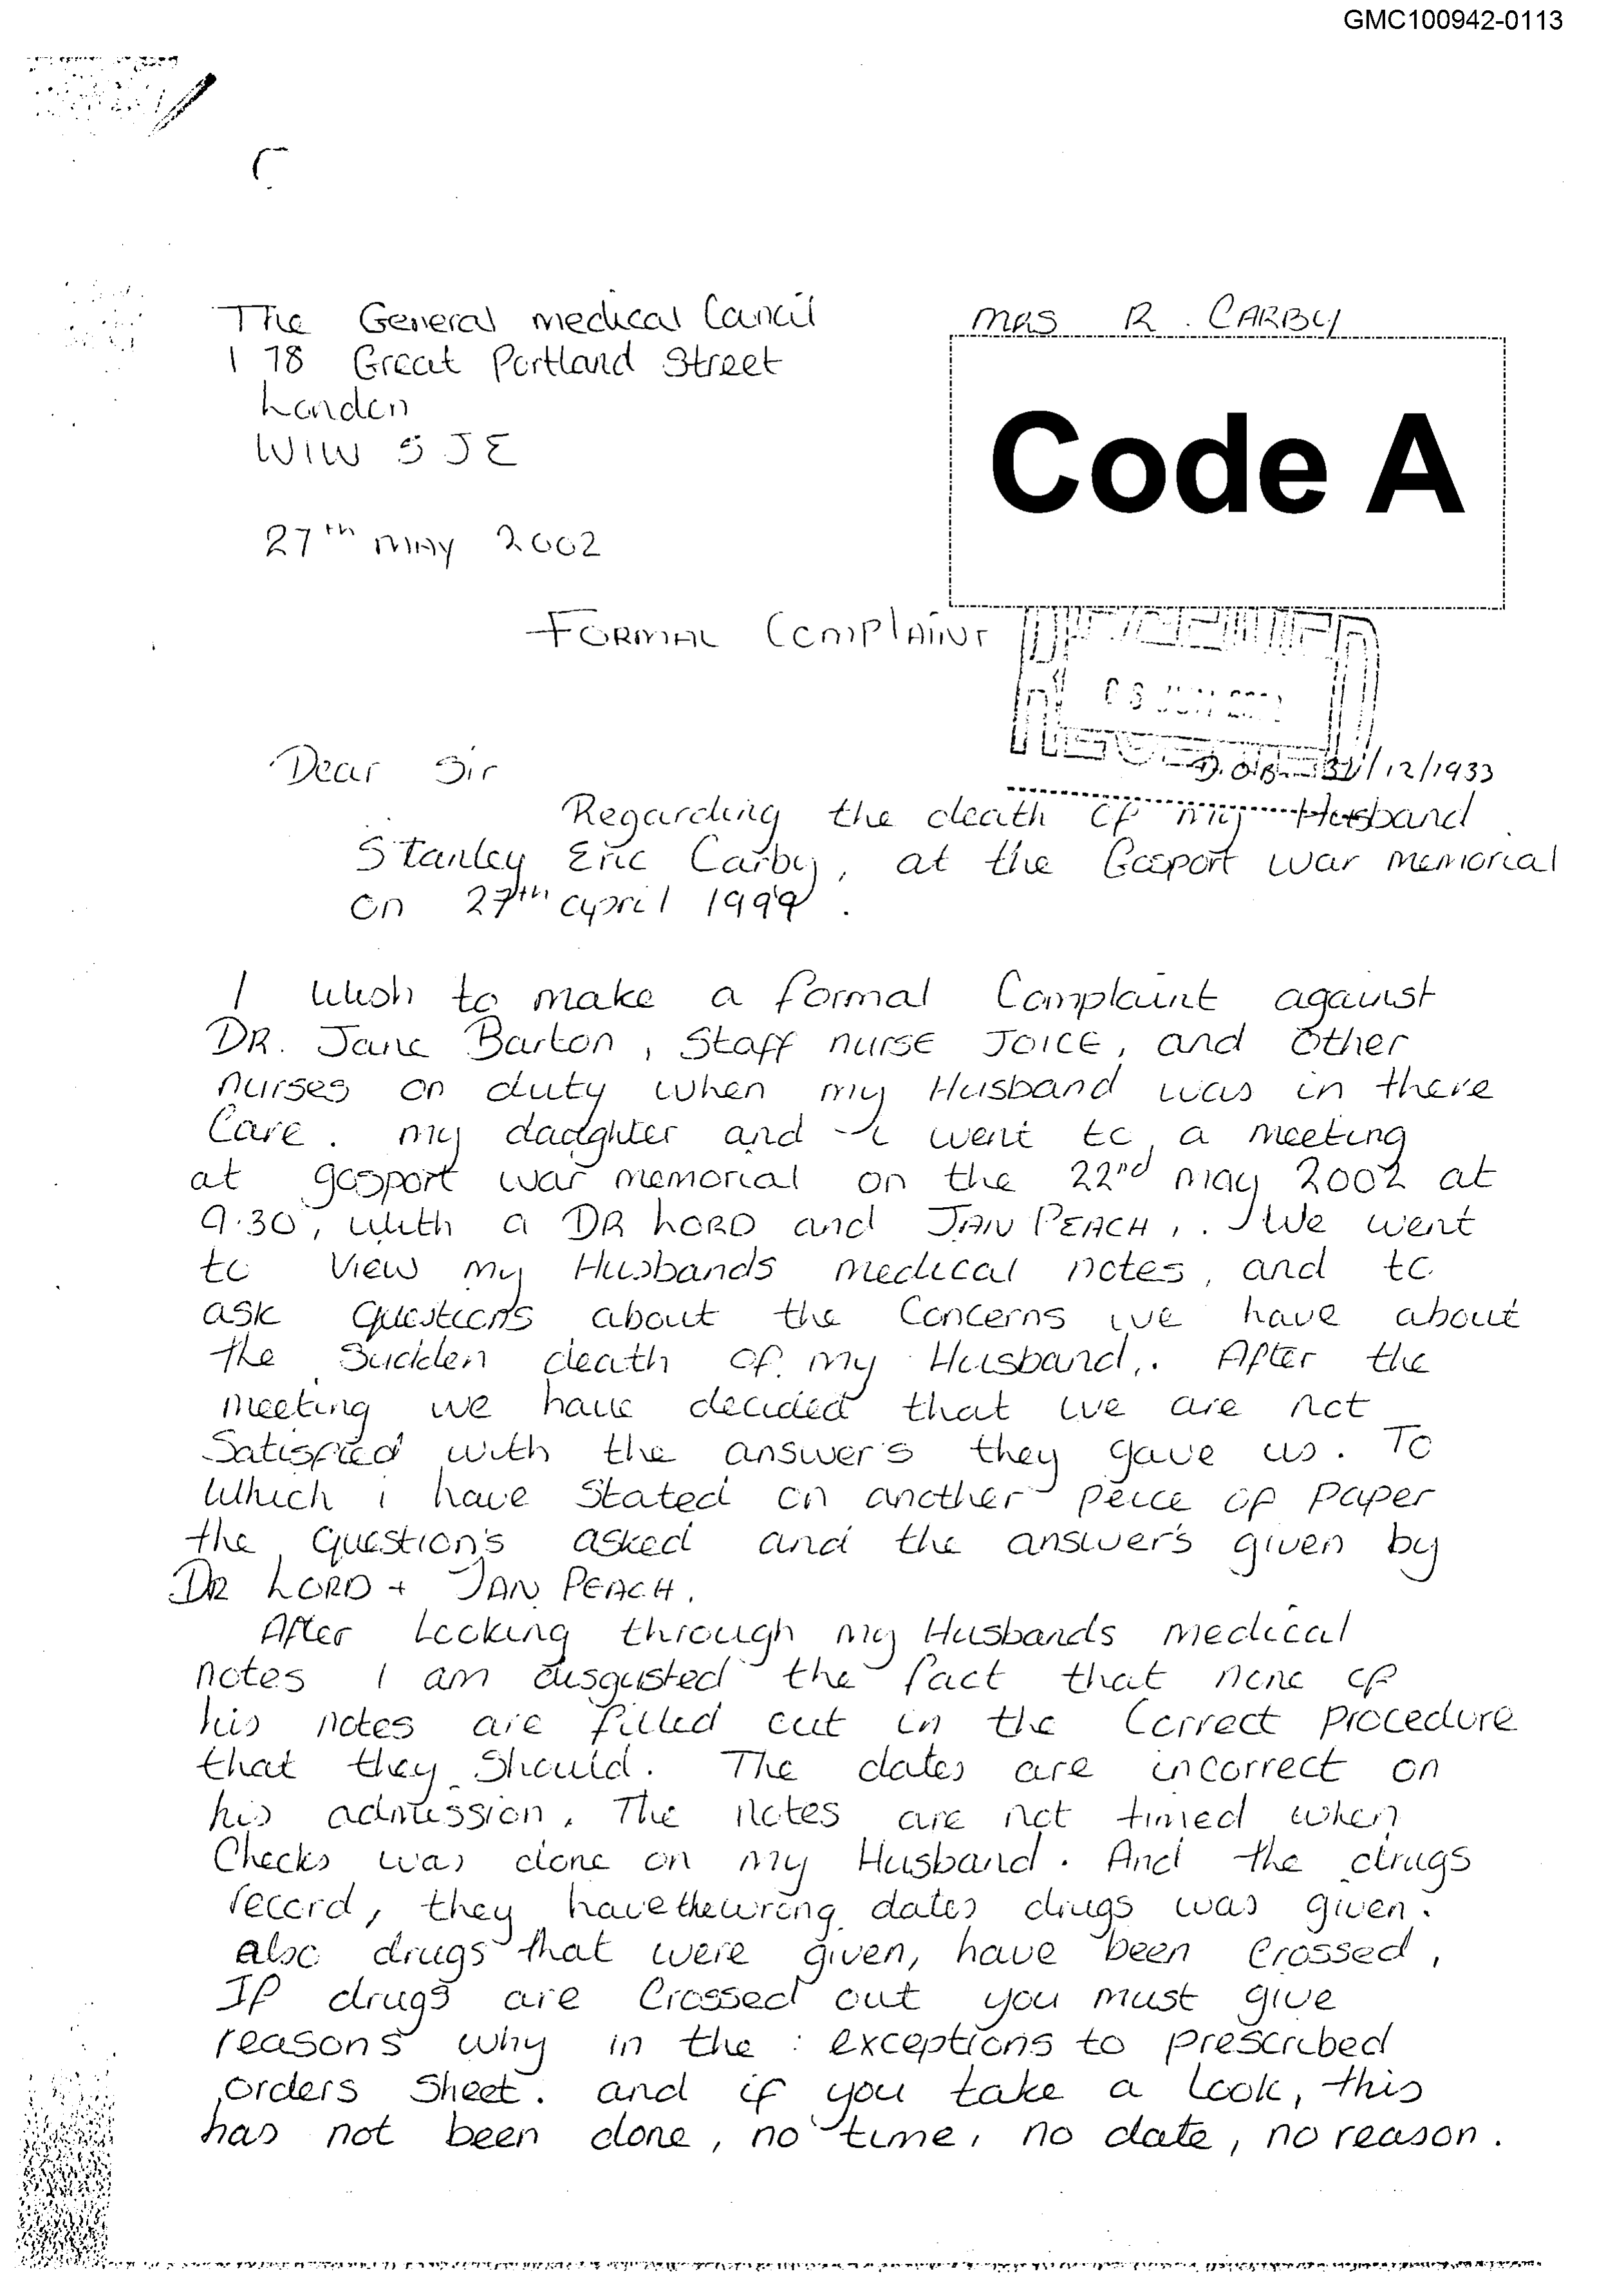 GMC100942-0113
The General medical Council
178 Great Portland Street
London
W1W 5JE
MRS R. CARBY
Code A
27th MAY 2002
FORMAL COMPlAiNT
Dear Sir
D.O.B. /12/1933
Regarding the death of my Husband
Stanley Eric Carby, at the Gosport war memorial
on 27th April 1999.
I wish to make a formal Complaint against
DR. Jane Barton, Staff nurse JOICE, and other
nurses on duty when my Husband was in there
Care. my daughter and i went to a meeting
at gosport war memorial on the 22nd may 2002 at
9.30, with a DR LORD and JAN PEACH,. We went
to view my Husbands medical notes, and to
ask questions about the Concerns we have about
the sudden death of my Husband,. After the
meeting we have decided that we are not
Satisfied with the answer's they gave us. To
which i have Stated on another peice of paper
the question's asked and the answer's given by
DR LORD + JAN PEACH.
After looking through my Husbands medical
notes I am disgusted the fact that none of
his notes are filled out in the Correct procedure
that they should. The dates are incorrect on
his admission. The notes are not timed when
Checks was done on my Husband. And the drugs
record, they have the wrong dates drugs was given.
also drugs that were given, have been Crossed,
If drugs are Crossed out you must give
reasons why in the : exceptions to prescribed
orders sheet. and if you take a look, this
has not been done, no time, no date, no reason.